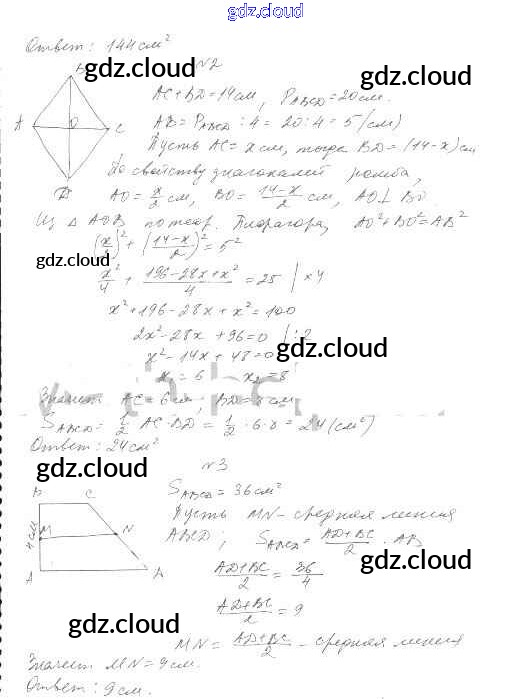 https://gdz.cloud
Ответ: 144 см²
gdz.cloud
gdz.cloud
N2
B
A
O
C
D
AC+BD=14 см, P_ABCD=20 см.
AB = P_ABCD : 4 = 20 : 4 = 5 (см)
Пусть AC = x см, тогда BD = (14-x) см
По свойству диагоналей ромба,
AO = x/2 см, BO = (14-x)/2 см, AO ⊥ BO.
Из △ AOB по теор. Пифагора, AO²+BO²=AB²
(x/2)² + ((14-x)/2)² = 5²
gdz.cloud
x²/4 + (196-28x+x²)/4 = 25 | ×4
x²+196-28x+x²=100
2x²-28x+96=0 | :2
gdz.cloud
x²-14x+48=0
x₁=6 x₂=8
Значит AC=6 см, BD=8 см
S_ABCD = 1/2 AC·BD = 1/2 ·6·8 = 24 (см²)
Ответ: 24 см²
gdz.cloud
N3
B
C
M
N
A
D
S_ABCD = 36 см²
Пусть MN - средняя линия
ABCD; S_ABCD = (AD+BC)/2 · AB
gdz.cloud
(AD+BC)/2 = 36/4
(AD+BC)/2 = 9
gdz.cloud
MN = (AD+BC)/2 - средняя линия
Значит MN = 9 см.
Ответ: 9 см.
gdz.cloud